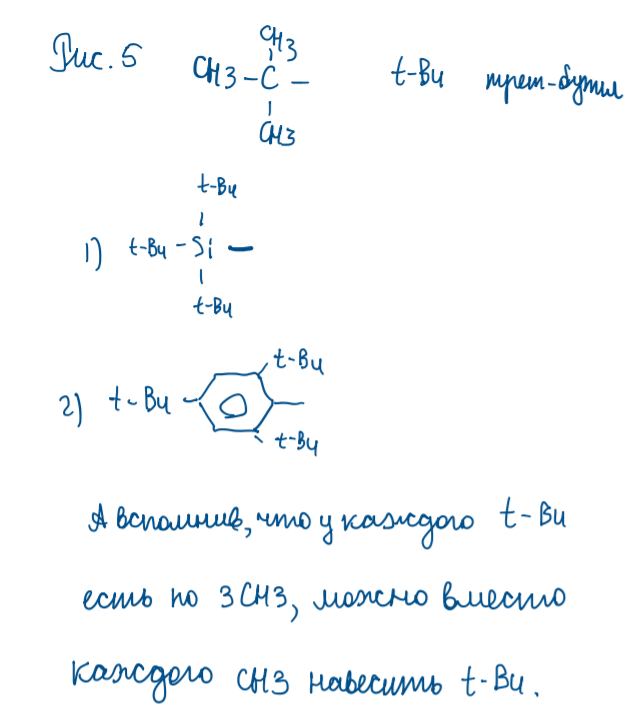 Рис. 5
CH3
CH3-C-
CH3
t-Bu трет-бутил
t-Bu
1) t-Bu-Si-
t-Bu
t-Bu
2) t-Bu
t-Bu
А вспомнив, что у каждого t-Bu
есть по 3CH3, можно вместо
каждого CH3 навесить t-Bu.